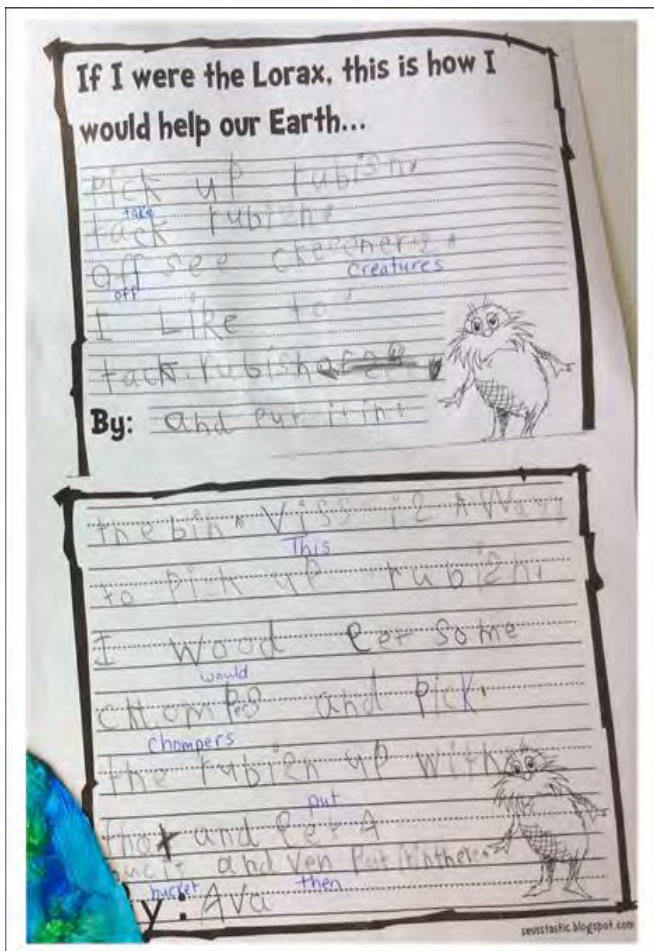 If I were the Lorax, this is how I
would help our Earth...
Pick up rubish.
take
tack rubish.
off see
off creatures
I Like to
tack rubish
By: and put it int
the bin. Viss is A Way
This
to pick up rubish.
I wood per some
would
chomps and pick
pers
Chompers
the rubish up with
put
that and per A
bucit and ven put it in there.
bucket then
y: Ava
seusstastic.blogspot.com